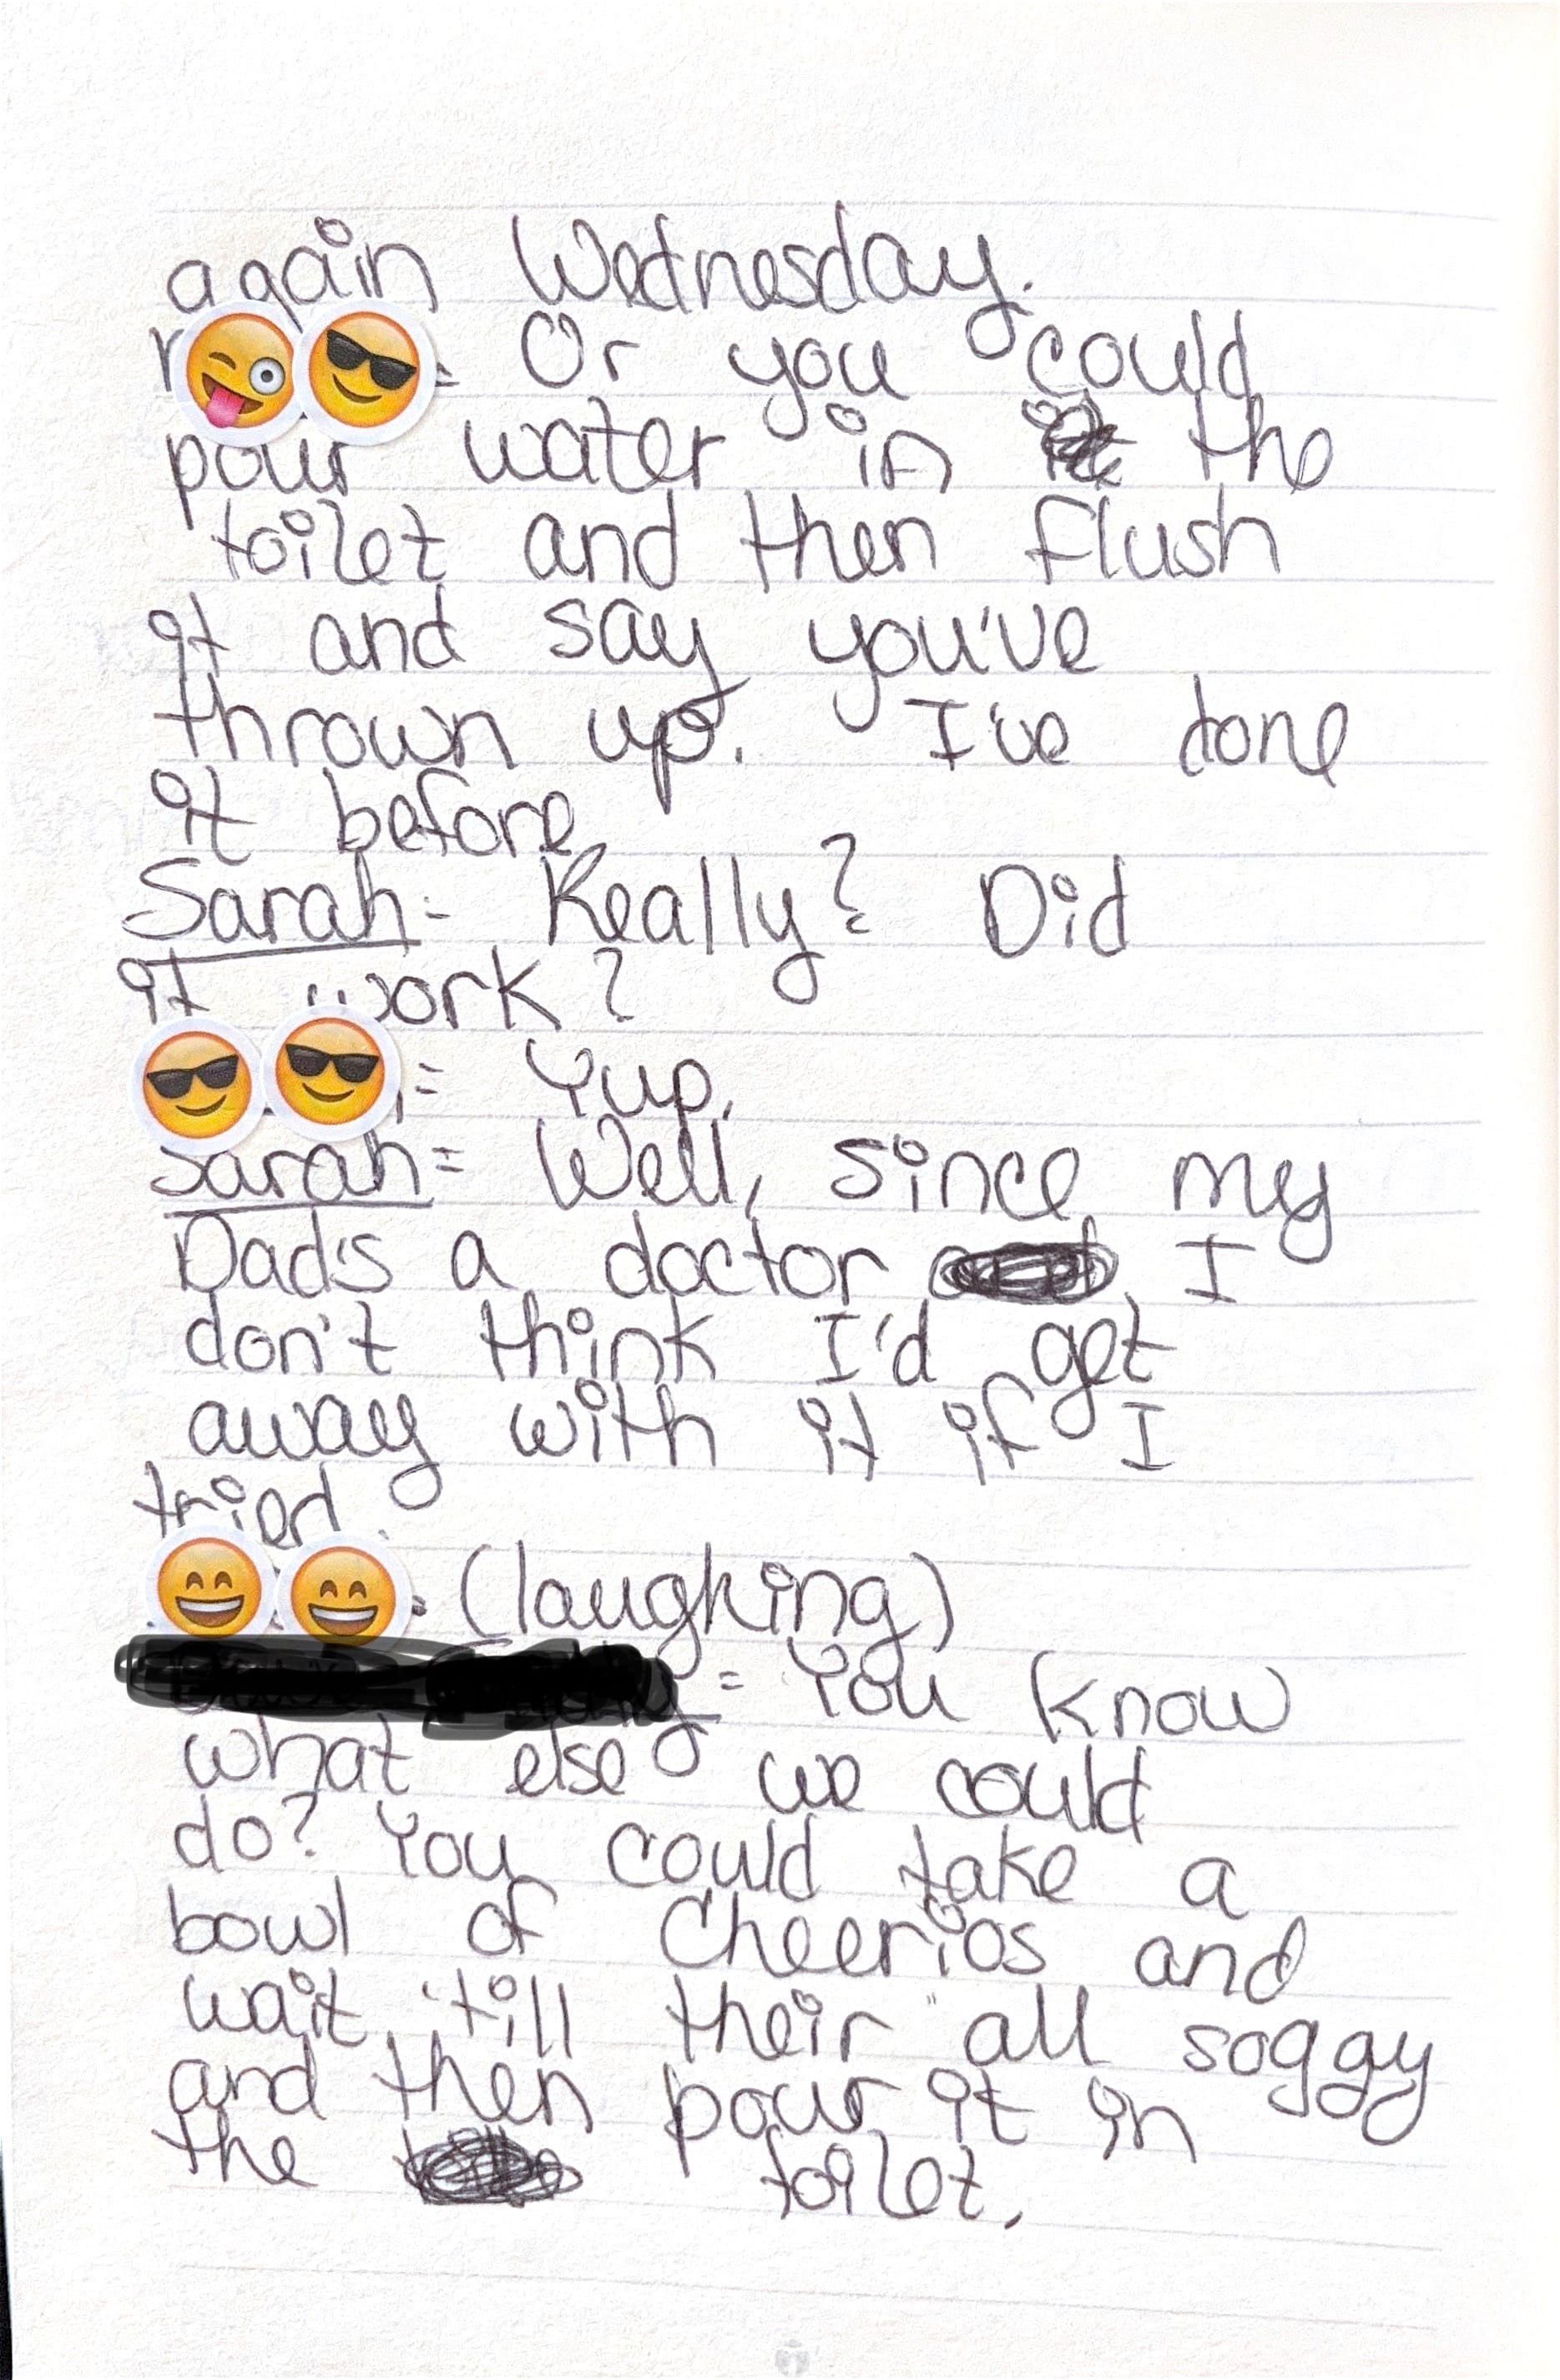 again Wednesday.
= Or you could
pour water in the
toilet and then flush
it and say you've
thrown up. I've done
it before.
Sarah= Really? Did
it work?
= Yup.
Sarah= Well, since my
Dad's a doctor, I
don't think I'd get
away with it if I
tried.
(laughing)
= You know
what else we could
do? You could take a
bowl of Cheerios and
wait 'till their all soggy
and then pour it in
the toilet.